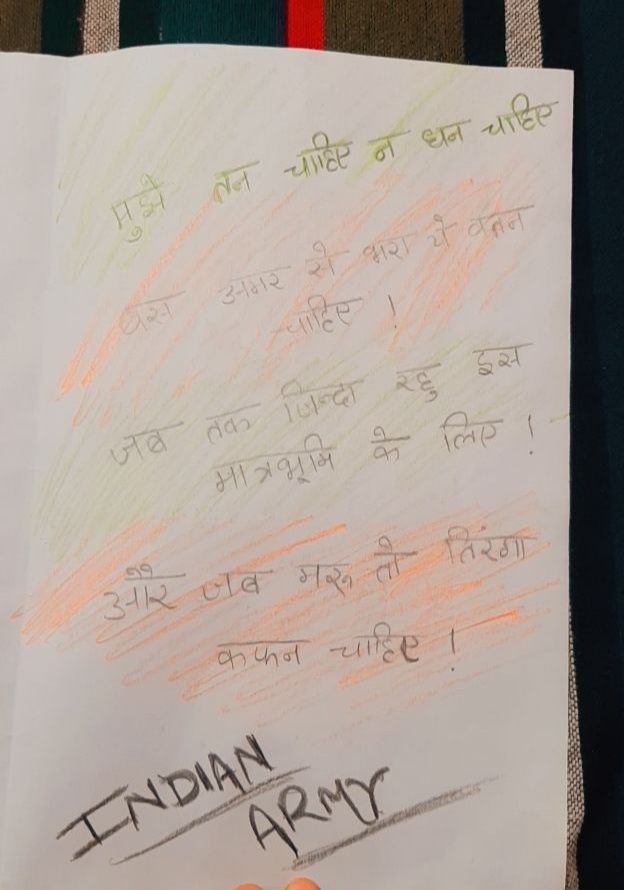 मुझे तन चाहिए न धन चाहिए
बस अमर से भरा ये वतन
चाहिए !
जब तक जिन्दा रहु इस
मात्रभूमि के लिए !
और जब मरू तो तिरंगा
कफन चाहिए !
INDIAN
ARMY